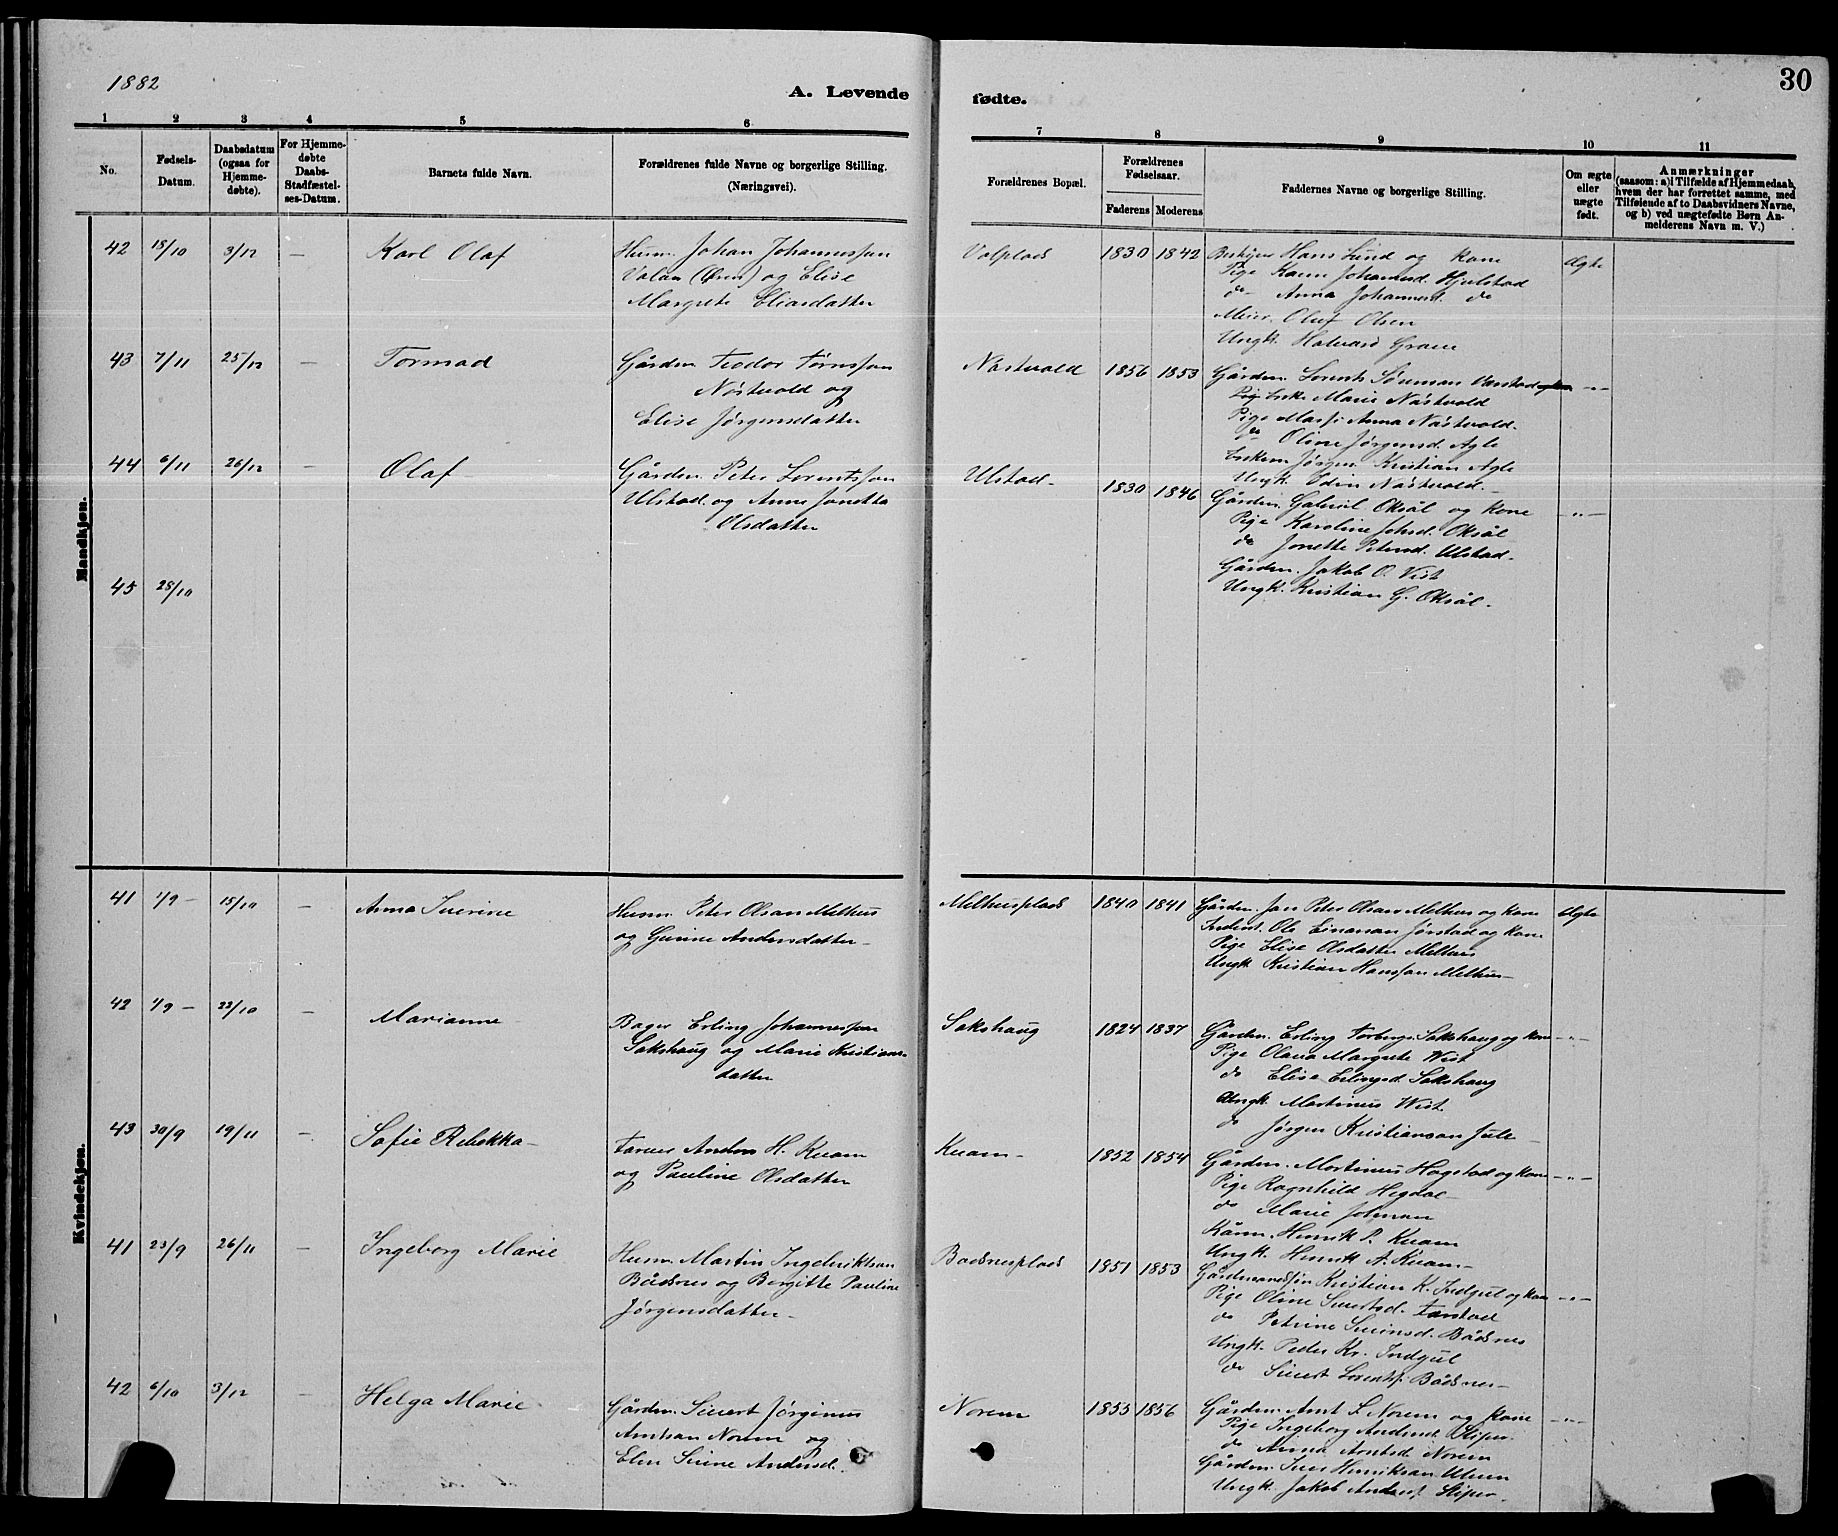 1882
A. Levende
fødte.
30
1 2 3 4 5 6
7 8 9 10 11
No.
Fødsels-Datum.
Daabsdatum (ogsaa for Hjemme-døbte).
For Hjemme-døbte Daabs-Stadfæstel-ses-Datum.
Barnets fulde Navn.
Forældrenes fulde Navne og borgerlige Stilling. (Næringsvei).
Forældrenes Bopæl.
Forældrenes Fødselsaar.
Faderens Moderens
Faddernes Navne og borgerlige Stilling.
Om ægte eller uægte født.
Anmærkninger
(saasom: a) i Tilfælde af Hjemmedaab,
hvem der har forrettet samme, med
Tilføiende af to Daabsvidners Navne,
og b) ved uægtefødte Børn An-
melderens Navn m. V.)
Mandkjøn.
42 15/10 3/12 — Karl Olaf
Husm. Johan Johannessen
Valan (Øren) og Elise
Margrete Eliasdatter
Valplads 1830 1842
Hans Lund og kone
Pige Karen Johannesd. Hjelstad
do Anna Johannesd. do
Meier Oluf Olsen
Ungk. Halvard Grane
Ægte
43 7/11 25/12 — Tormod
Gårdm. Teodor
Nöstvold og
Elise Jørgensdatter
Nöstvold 1856 1853
Gårdm. Lorents
Enke Marie Nöstvold
Pige Anna Nöstvold
do Oline Jørgensd. Agle
Jørgen Kristian Agle
Ungk. Odin Nöstvold
—"—
44 6/11 26/12 — Olaf
Gårdm. Peter Lorentssen
Ulstad og Anne Jonetta
Olsdatter
Ulstad 1830 1846
Gårdm. Gabriel Oksål og kone
Pige Karoline Johsd. Oksål
do Jonette Petersd. Ulstad
Gårdm. Jakob O. Vist
Ungk. Kristian G. Oksål
—"—
45 28/10
Kvindekjøn.
41 1/9 15/10 — Anna
Husm. Peter Olsen Melhus
og Andersdatter
Melhusplads 1840 1841
Gårdm. Jon Peter Olsen Melhus og kone
Ole Jørstad og kone
Pige Elise Olsdatter Melhus
Ungk. Kristian Hanssen Melhus
Ægte
42 1/9 22/10 — Marianne
Bager Erling Johannessen
Sakshaug og Marie Kristians-
datter
Sakshaug 1824 1837
Gårdm. Erling Torbergs. Sakshaug og kone
Pige Olava Margrete Wist
do Elise Erlingsd. Sakshaug
Ungk. Martinus Wist
do Jørgen Kristiansen
—"—
43 30/9 19/11 — Sofie Rebekka
Anders H. Kvam
og Pauline Olsdatter
Kvam 1852 1854
Gårdm. Martinus Hagstad og kone
Pige Ragnhild Hegdal
do Marie
Kårm. Henrik P. Kvam
Ungk. Henrik A. Kvam
—"—
41 23/9 26/11 — Ingeborg Marie
Husm. Martin Ingebriktsen
Bådsnes og Bergitte Pauline
Jørgensdatter
Baadsnesplads 1851 1853
Kristian K. Indgul og kone
Pige Oline
do Petrine Bådsnes
Ungk. Peder Kr. Indgul
do Sivert Lorents. Bådsnes
—"—
42 6/10 3/12 — Helga Marie
Gårdm. Sivert Jørginus
Arntsen Norem og
Elen Andersd.
Norem 1855 1856
Gårdm. Arnt S. Norem og kone
Pige Ingeborg Andersd.
do Anna Arntsd. Norem
Gårdm. Iver Henriksen
Ungk. Jakob Anders.
—"—